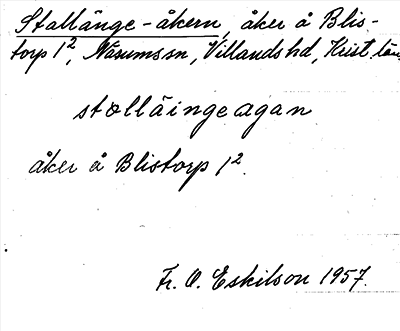 Stallänge-åkern, åker å Blis-
torp 1², Näsumssn, Villands hd, Krist. län
stolläingeagan
åker å Blistorp 1².
Fr. O. Eskilson 1957.